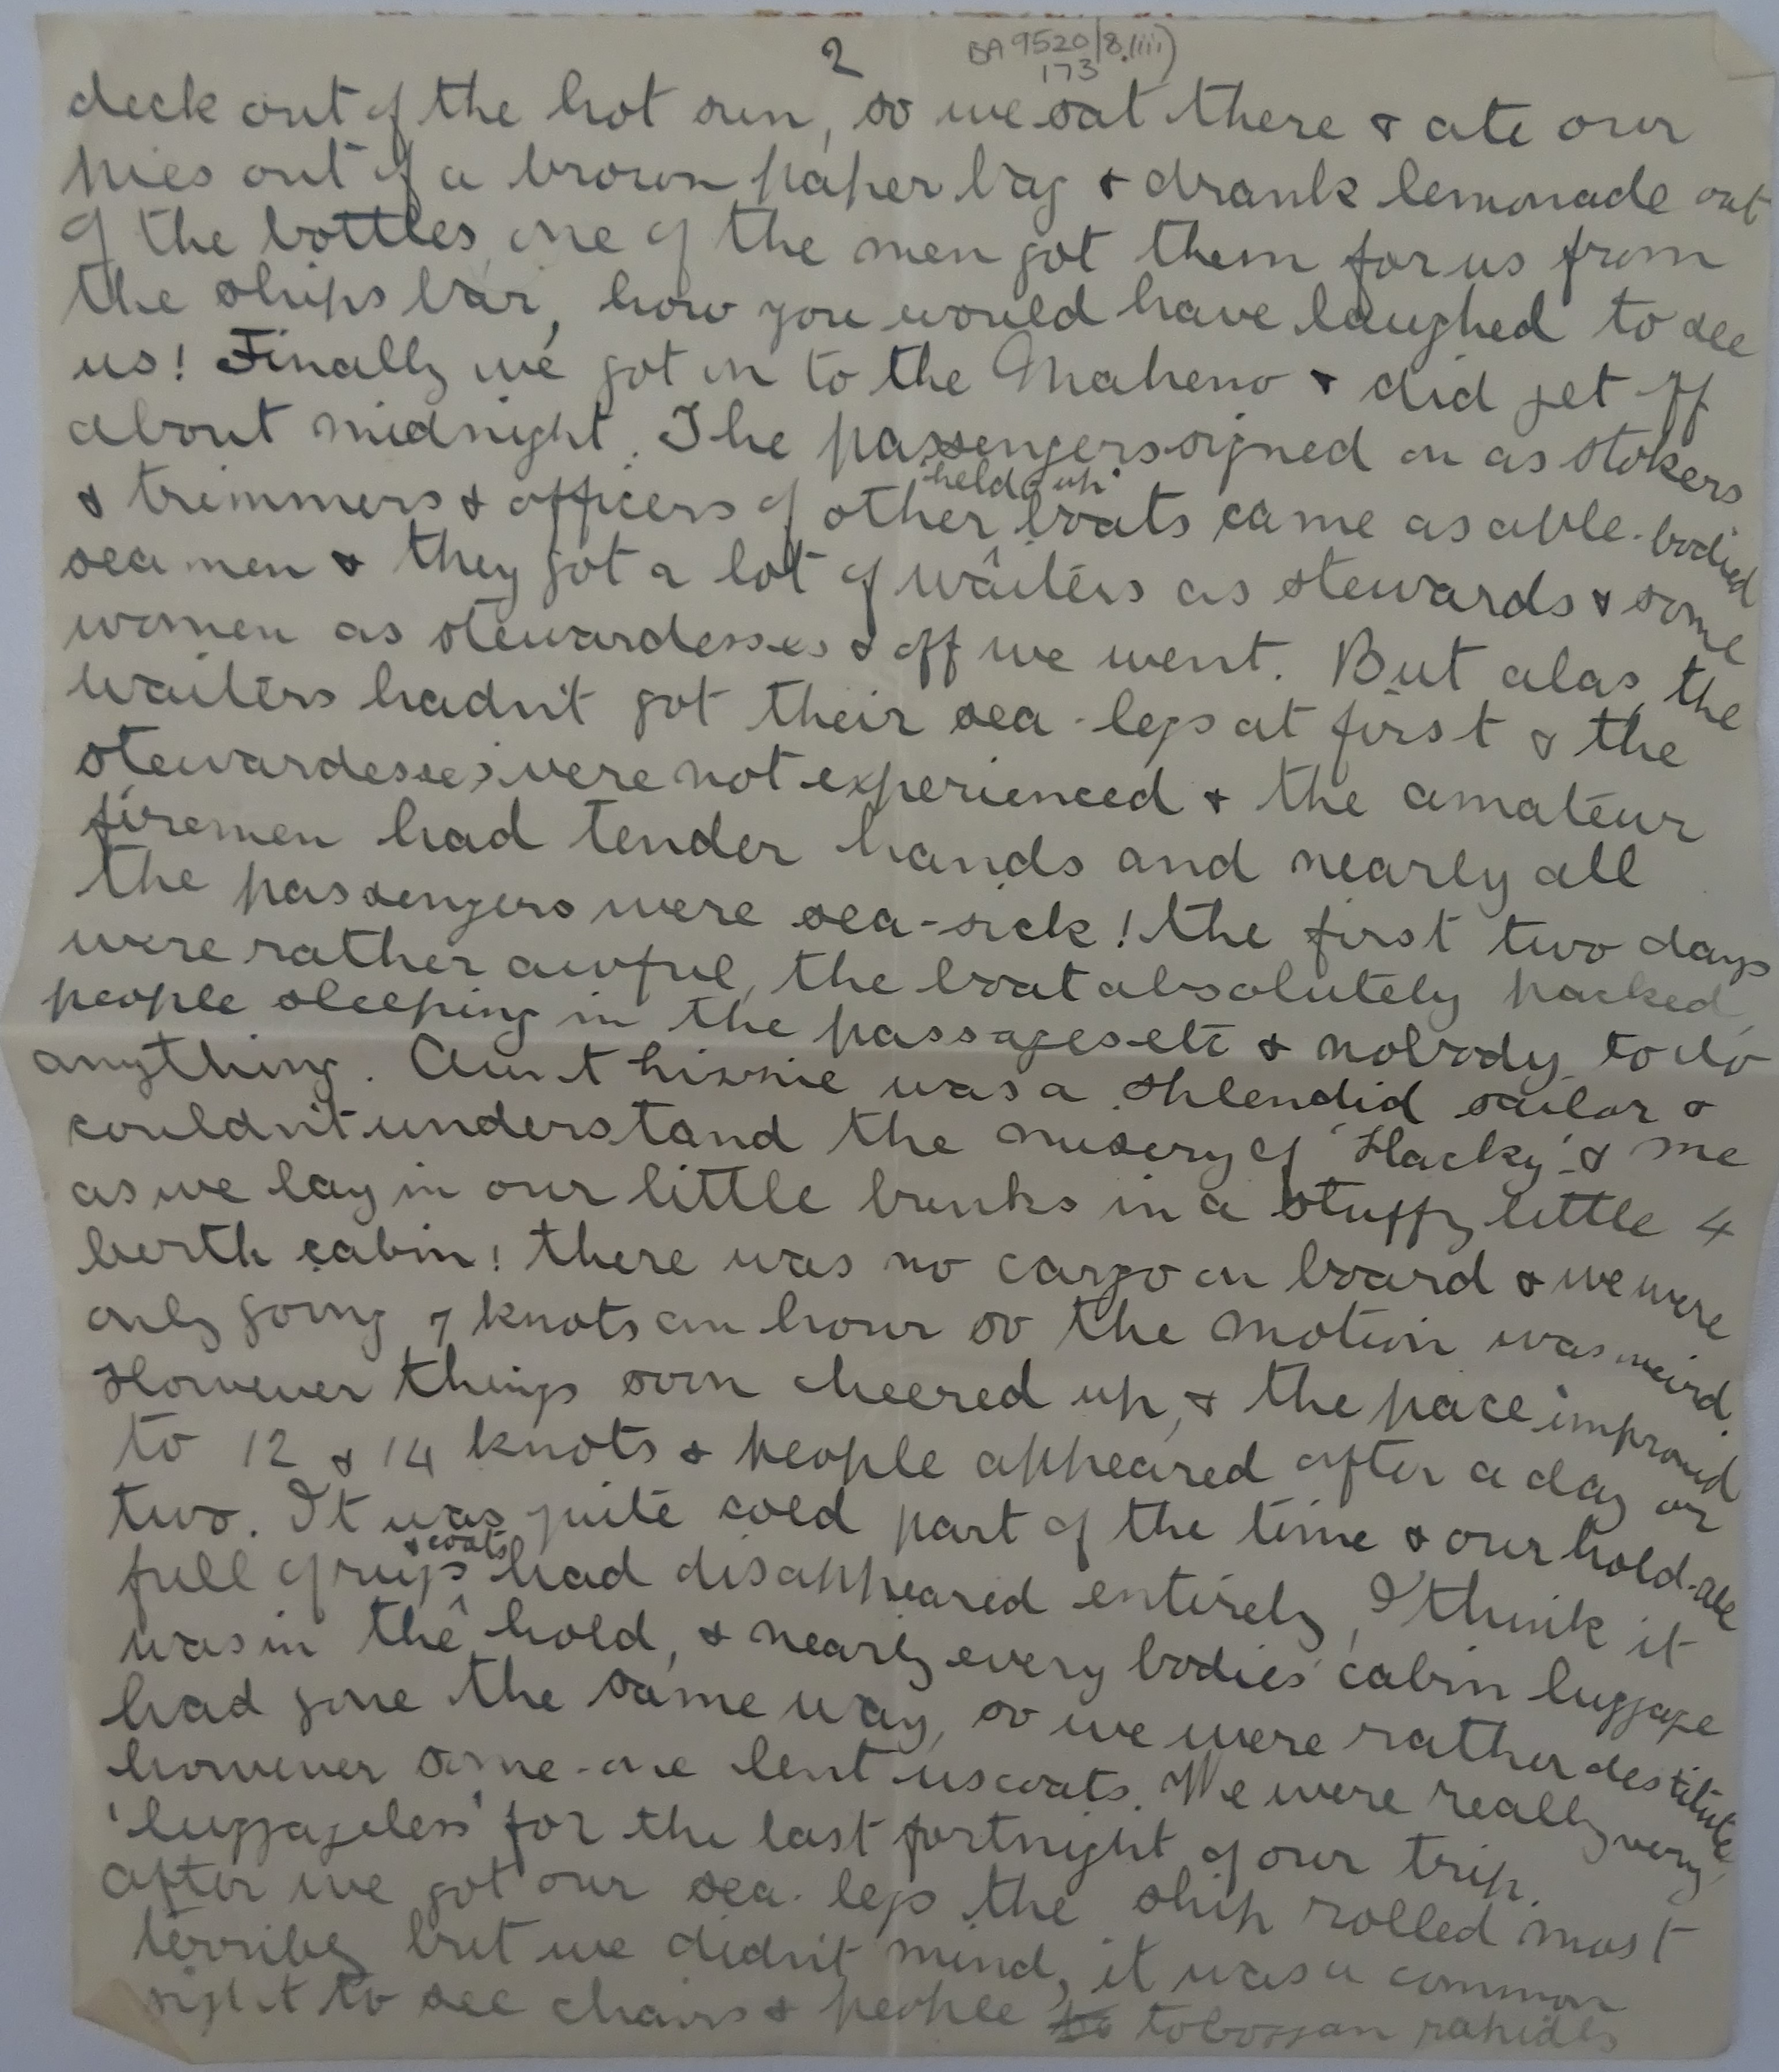 2
BA 9520/8.(iii)
173
deck out of the hot sun, so we sat there & ate our
pies out of a brown paper bag & drank lemonade out
of the bottles, one of the men got them for us from
the ships bar, how you would have laughed to see
us! Finally we got in to the Maheno & did get off
about midnight. The passengers signed on as stokers
& trimmers & officers of other "held up" boats came as able-bodied
seamen & they got a lot of waiters as stewards & some
women as stewardesses & off we went. But alas, the
waiters hadn't got their sea-legs at first & the
stewardesses were not experienced & the amateur
firemen had tender hands and nearly all
the passengers were sea-sick! the first two days
were rather awful, the boat absolutely packed,
people sleeping in the passages etc & nobody to do
anything. Aunt Linnie was a splendid sailor &
couldn't understand the misery of 'Hacky' & me
as we lay in our little bunks in a stuffy little 4
berth cabin! there was no cargo on board & we were
only going 7 knots an hour so the motion was weird.
However things soon cheered up, & the pace improved
to 12 & 14 knots & people appeared after a day or
two. It was quite cold part of the time & our hold-all
full of rugs & coats had disappeared entirely, I think it
was in the hold, & nearly every bodies' cabin luggage
had gone the same way, so we were rather destitute
however some-one lent us coats. We were really very
'luggageless' for the last fortnight of our trip.
After we got our sea-legs the ship rolled most
terribly but we didn't mind, it was a common
sight to see chairs & people to toboggan rapidly